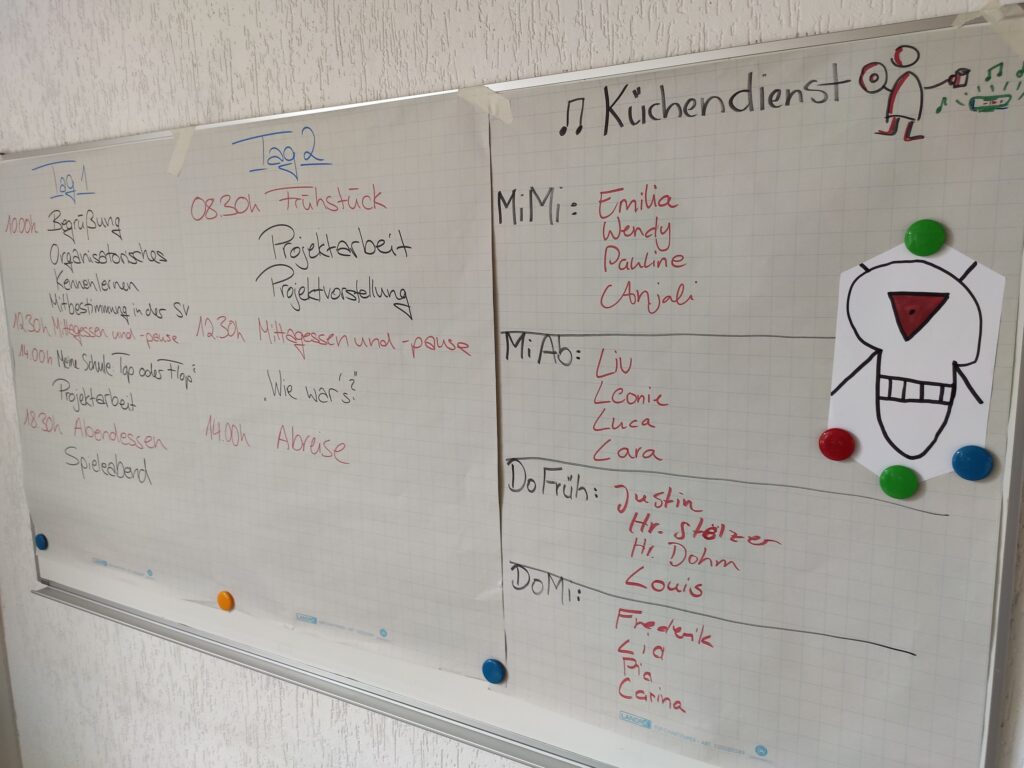 Tag 1
10.00h Begrüßung
Organisatorisches
Kennenlernen
Mitbestimmung in der SV
12.30h Mittagessen und -pause
14.00h Meine Schule: Top oder Flop?
Projektarbeit
18:30h Abendessen
Spieleabend
Tag 2
08.30h Frühstück
Projektarbeit
Projektvorstellung
12.30h Mittagessen und -pause
"Wie war's?"
14.00h Abreise
♫ Küchendienst
MiMi: Emilia
Wendy
Pauline
Anjali
MiAb: Liv
Leonie
Luca
Lara
DoFrüh: Justin
Hr. Stølzer
Hr. Dohm
Louis
DoMi:
Frederik
Lia
Pia
Carina